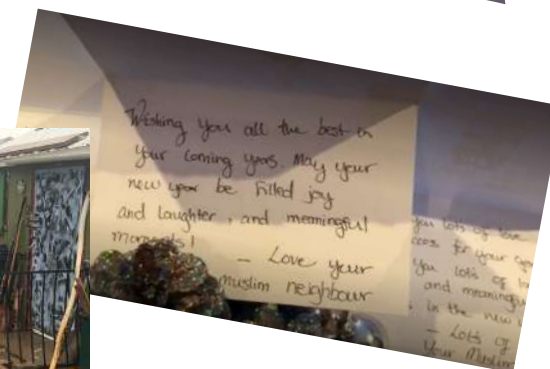 Wishing you all the best in
your coming years. May your
new year be filled joy
and laughter, and meaningful
moments!
– Love your
muslim neighbour
you lots of love
for your
you lots of
and meaningful
in the new
– Lots of
Your Muslim